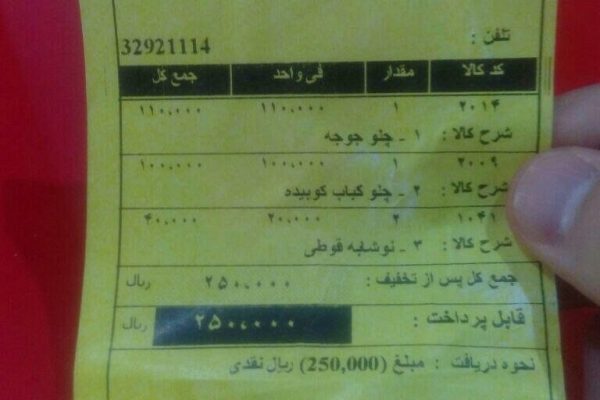 تلفن : 32921114
کد کالا مقدار فی واحد جمع کل
۲۰۱۴ ۱ ۱۱۰،۰۰۰ ۱۱۰،۰۰۰
شرح کالا : ۱ - چلو جوجه
۲۰۰۹ ۱ ۱۰۰،۰۰۰ ۱۰۰،۰۰۰
شرح کالا : ۲ - چلو کباب کوبیده
۱۰۴۱ ۲ ۲۰،۰۰۰ ۴۰،۰۰۰
شرح کالا : ۳ - نوشابه قوطی
جمع کل پس از تخفیف : ۲۵۰،۰۰۰ ریال
قابل پرداخت : ۲۵۰،۰۰۰ ریال
نحوه دریافت : مبلغ (250,000) ریال نقدی